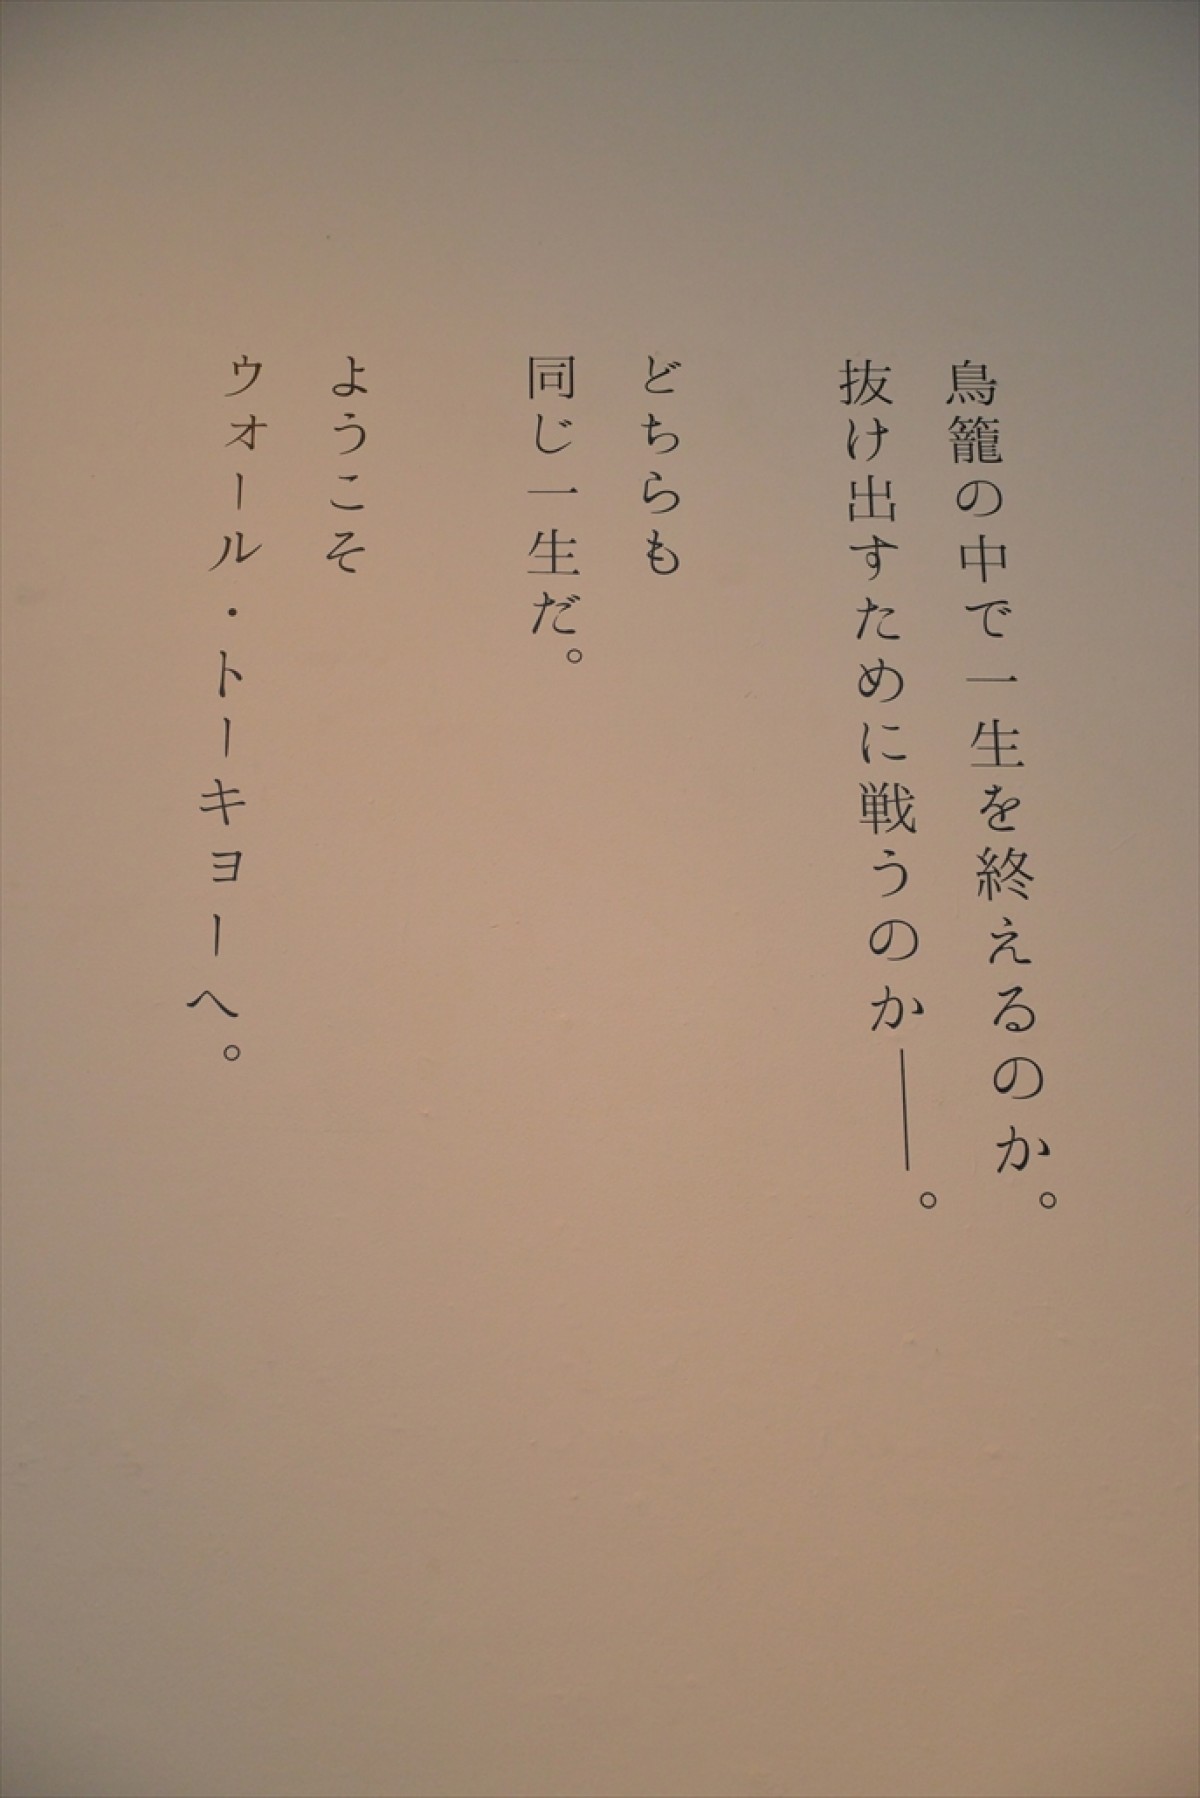 鳥籠の中で一生を終えるのか。
抜け出すために戦うのか──。
どちらも
同じ一生だ。
ようこそ
ウォール・トーキョーへ。